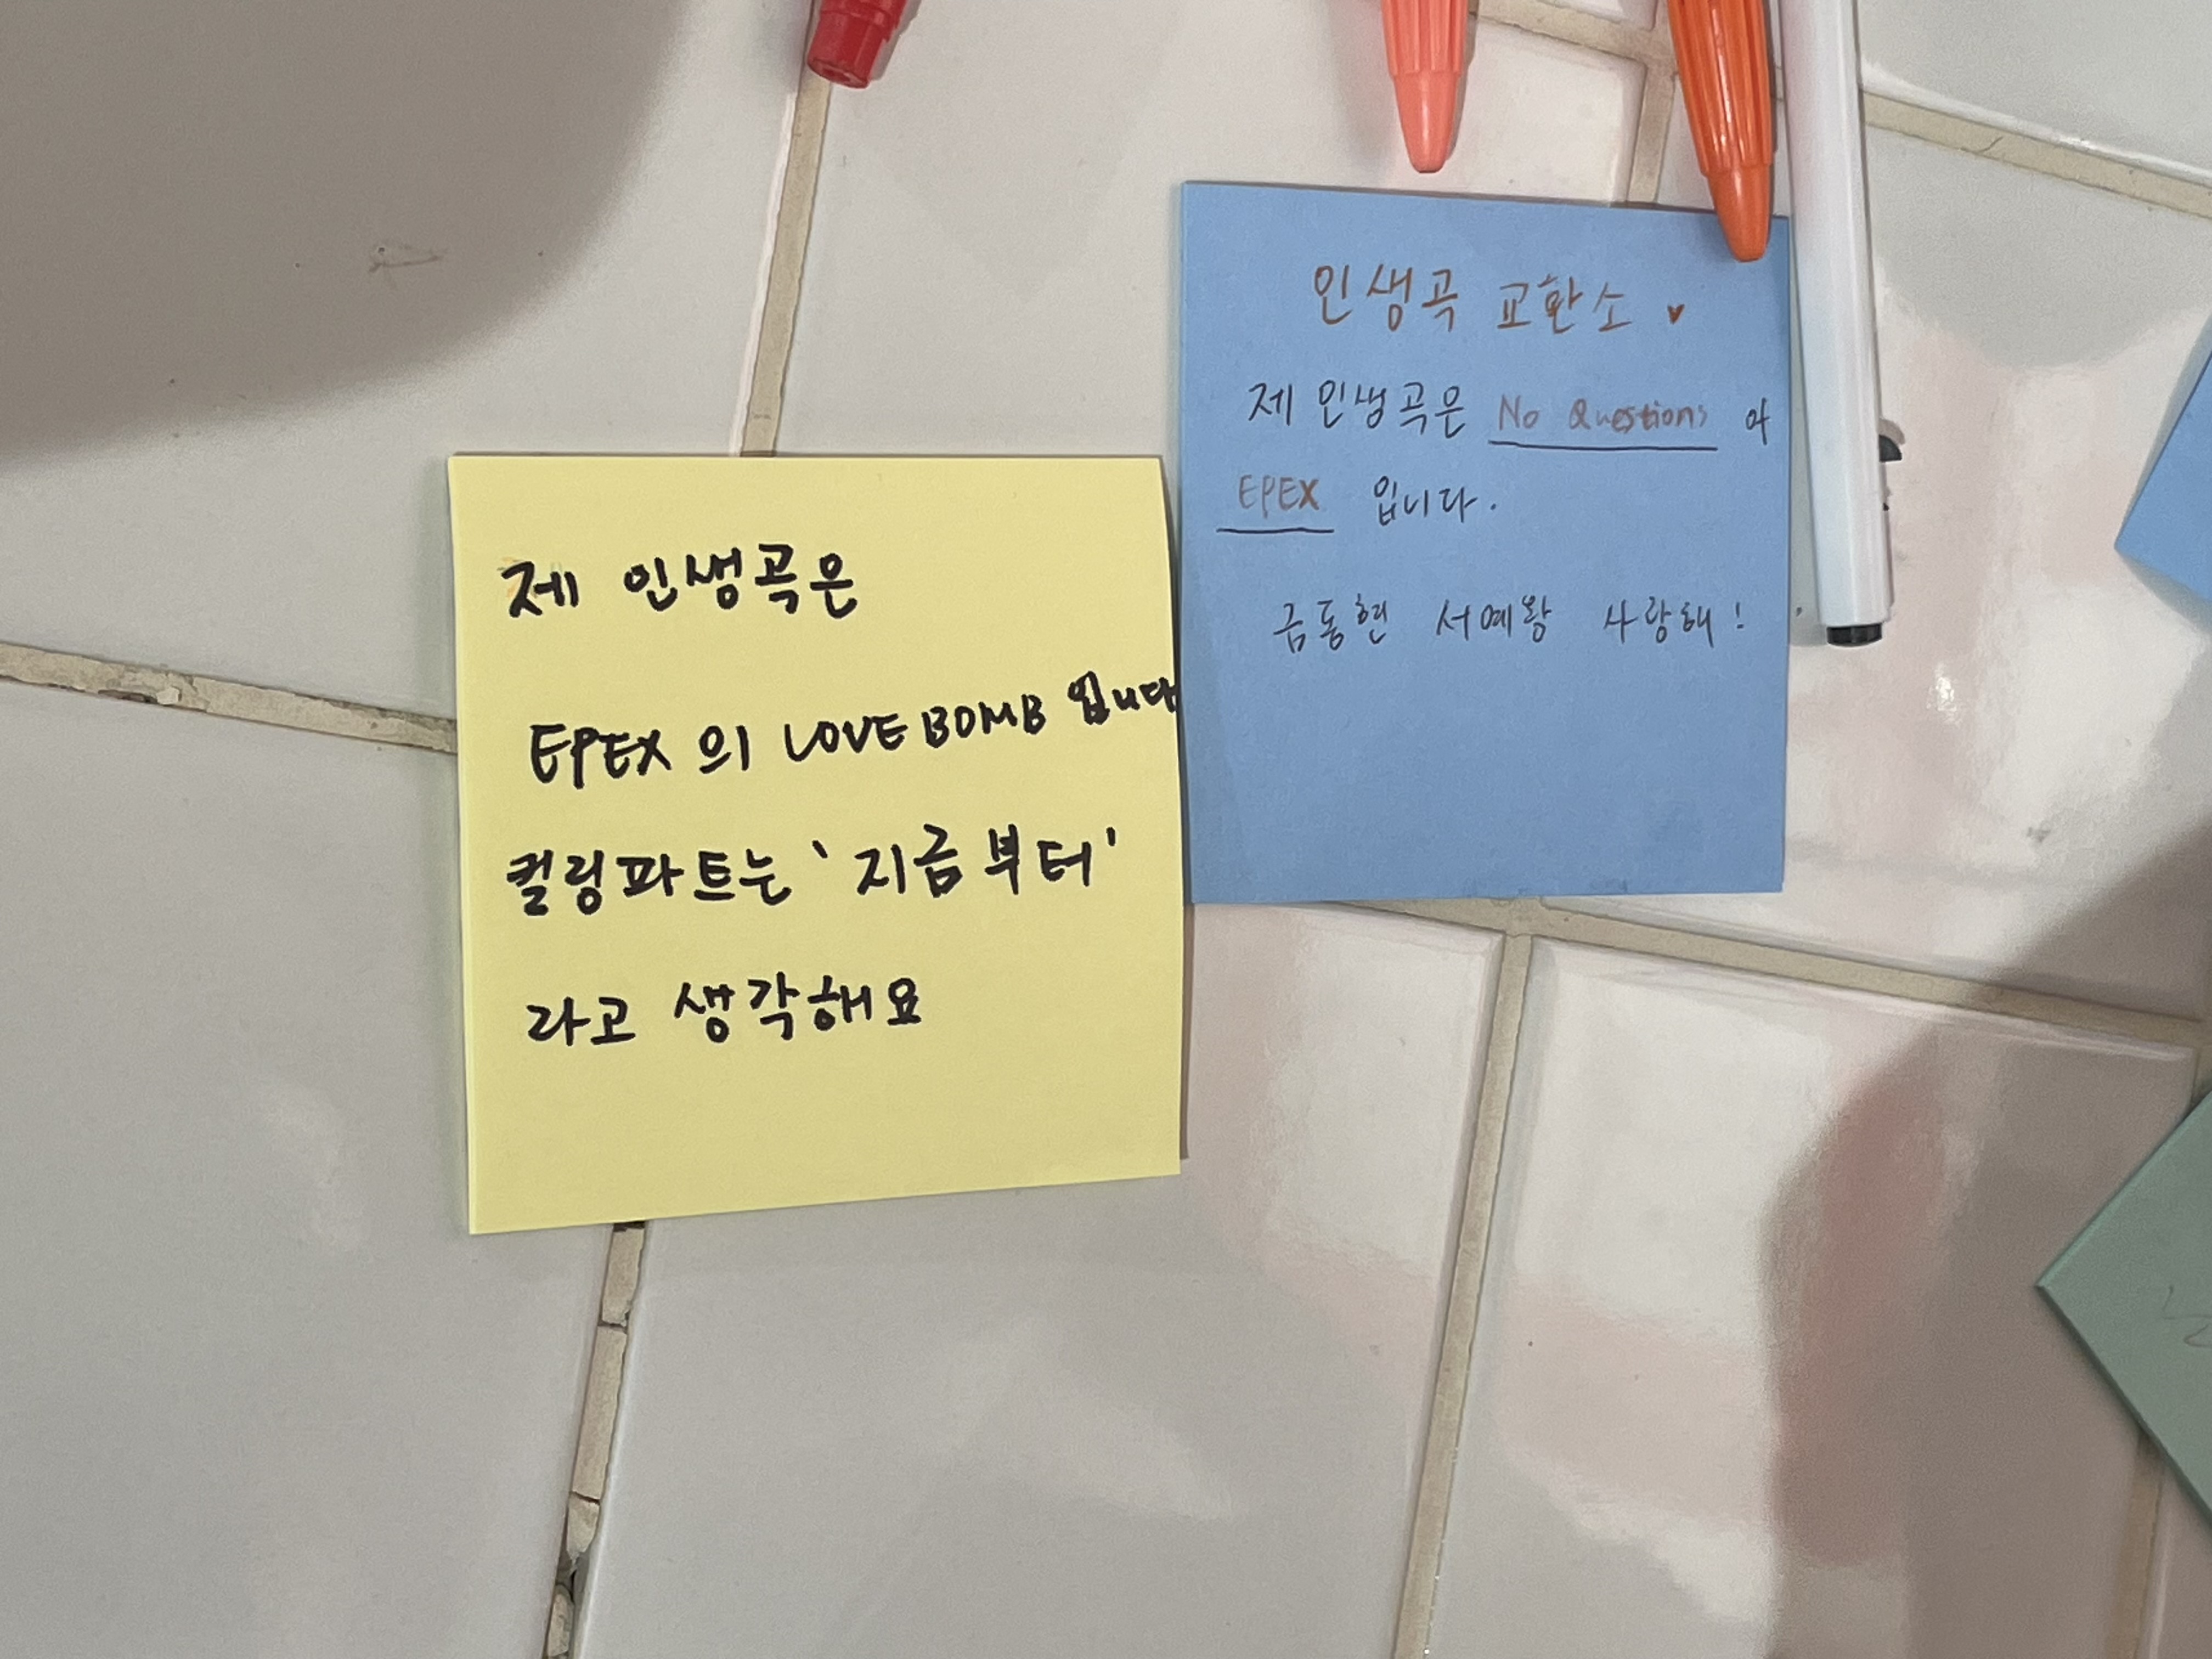 인생곡 교환소 ♥
제 인생곡은 No Questions 야
EPEX 입니다.
금동현 서예왕 사랑해!
제 인생곡은
EPEX 의 LOVE BOMB 입니다
컬링파트는 '지금부터'
라고 생각해요